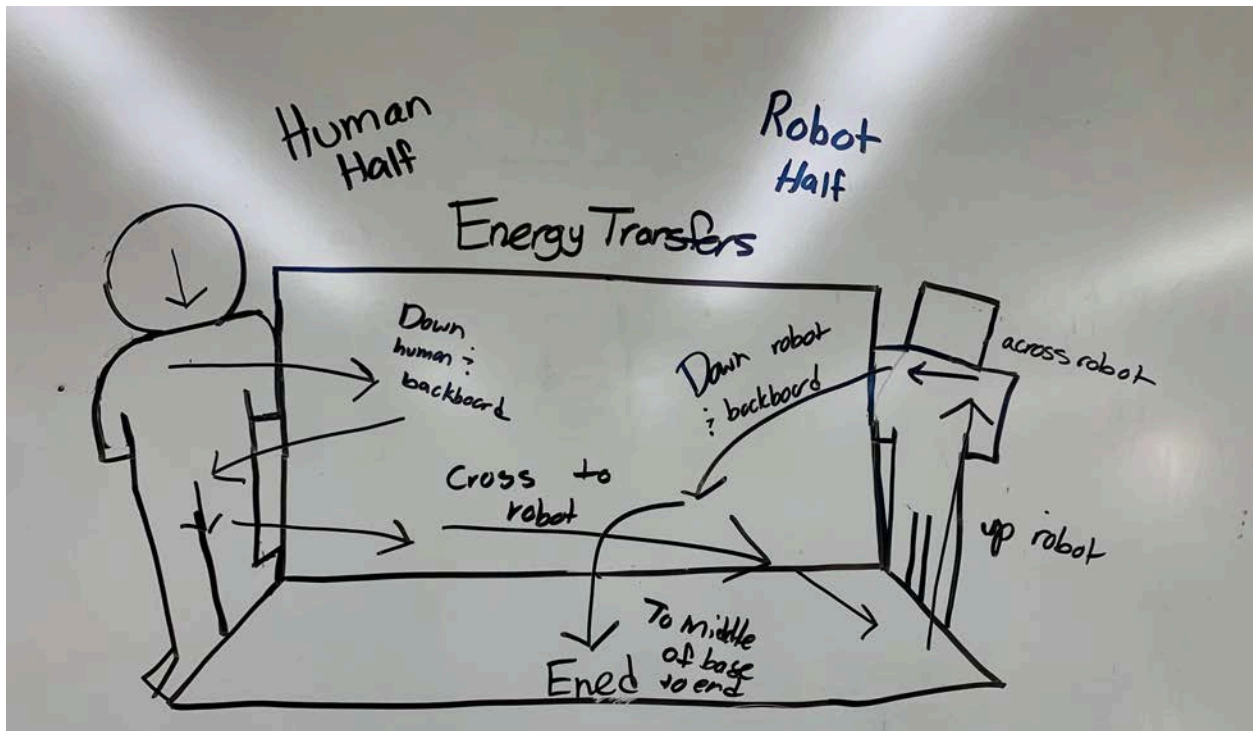 Human
Half
Robot
Half
Energy Transfers
Down
human &
backboard
Down robot
& backboard
across robot
Cross to
robot
up robot
To middle
of base
to end
Ened